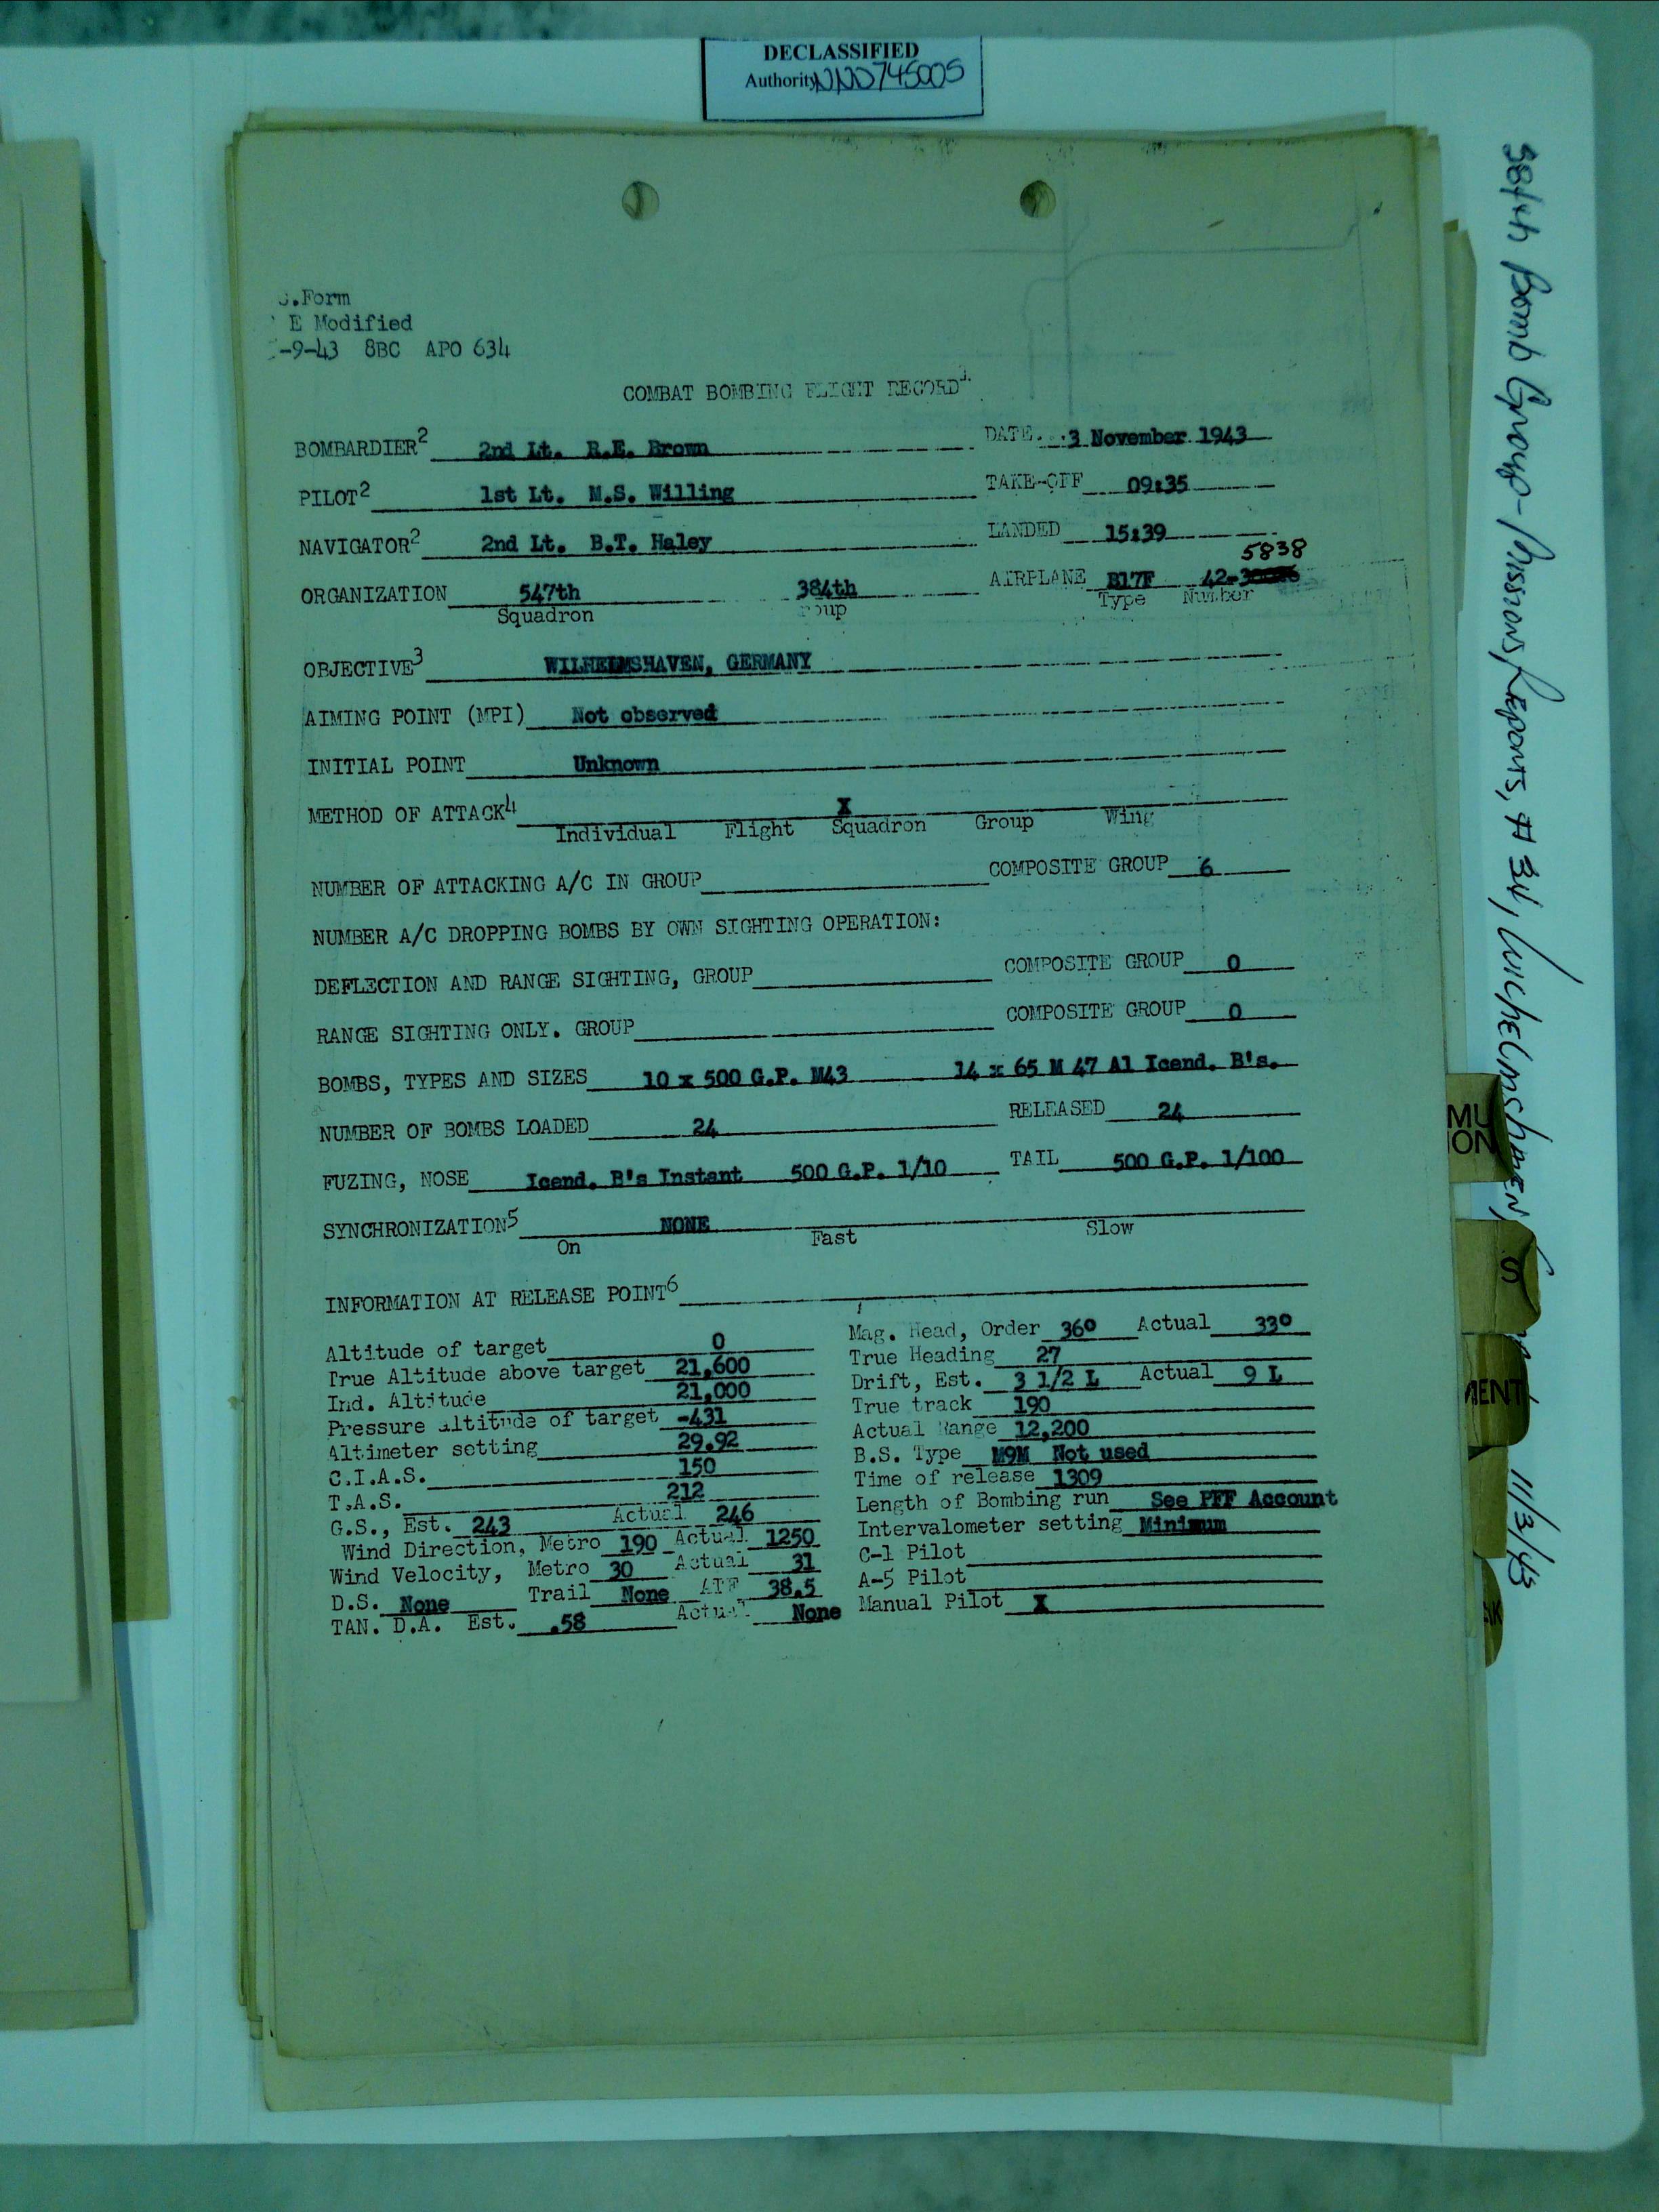 DECLASSIFIED
Authority NND745005
.Form
E Modified
-9-43 8BC APO 634
COMBAT BOMBING FLIGHT RECORD1
BOMBARDIER2 2nd Lt. R.E. Brown DATE 3 November 1943
PILOT2 1st Lt. M.S. Willing TAKE-OFF 09:35
NAVIGATOR2 2nd Lt. B.T. Haley LANDED 15:39
5838
ORGANIZATION 547th 384th AIRPLANE B17F 42-3
Squadron oup Type Number
OBJECTIVE3 WILHELMSHAVEN, GERMANY
AIMING POINT (MPI) Not observed
INITIAL POINT Unknown
METHOD OF ATTACK4 X
Individual Flight Squadron Group Wing
NUMBER OF ATTACKING A/C IN GROUP COMPOSITE GROUP 6
NUMBER A/C DROPPING BOMBS BY OWN SIGHTING OPERATION:
DEFLECTION AND RANGE SIGHTING, GROUP COMPOSITE GROUP 0
RANGE SIGHTING ONLY. GROUP COMPOSITE GROUP 0
BOMBS, TYPES AND SIZES 10 x 500 G.P. M43 14 x 65 M 47 A1 Icend. B's.
NUMBER OF BOMBS LOADED 24 RELEASED 24
FUZING, NOSE Icend. B's Instant 500 G.P. 1/10 TAIL 500 G.P. 1/100
SYNCHRONIZATION5 NONE
On Fast Slow
INFORMATION AT RELEASE POINT6
Altitude of target 0
True Altitude above target 21,600
Ind. Altitude 21,000
Pressure altitude of target -431
Altimeter setting 29.92
C.I.A.S. 150
T.A.S. 212
G.S., Est. 243 Actual 246
Wind Direction, Metro 190 Actual 1250
Wind Velocity, Metro 30 Actual 31
D.S. None Trail None ATF 38.5
TAN. D.A. Est. .58 Actual None
Mag. Head, Order 36° Actual 33°
True Heading 27
Drift, Est. 3 1/2 L Actual 9 L
True track 190
Actual Range 12,200
B.S. Type M9M Not used
Time of release 1309
Length of Bombing run See PFF Account
Intervalometer setting Minimum
C-1 Pilot
A-5 Pilot
Manual Pilot X
384th Bomb Group - Mission Reports, # 34, Wilhelmshaven,
11/3/43
MU
ION
S
MENT